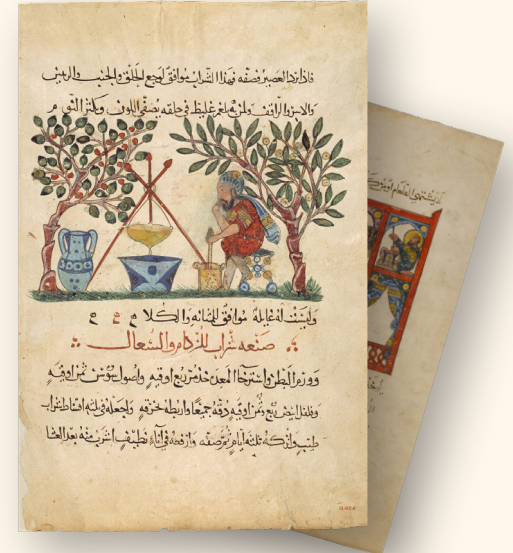 فاذا برد العصير فصفه فهذا الشراب موافق لوجع الحلق والجنب والرجين
ولمن به بلغم غليظ في حلقه يصفي اللون ويكثر النوم
وليست له غايلة موافق للمثانه والكلا
صنعه شراب للزكام والسعال
وورم البطن واسترخا المعده خذ مر ربع اوقيه واصول سوس ثمن اوقيه
وفلفل ابيض ربع وثمن اوقيه دقه جميعا واربطه في خرقه واجعله في ثلثه اقساط شراب
طيب واتركه ثلثه ايام ثم صفه وارفعه في اناء نظيف اشرب منه بعد العشا